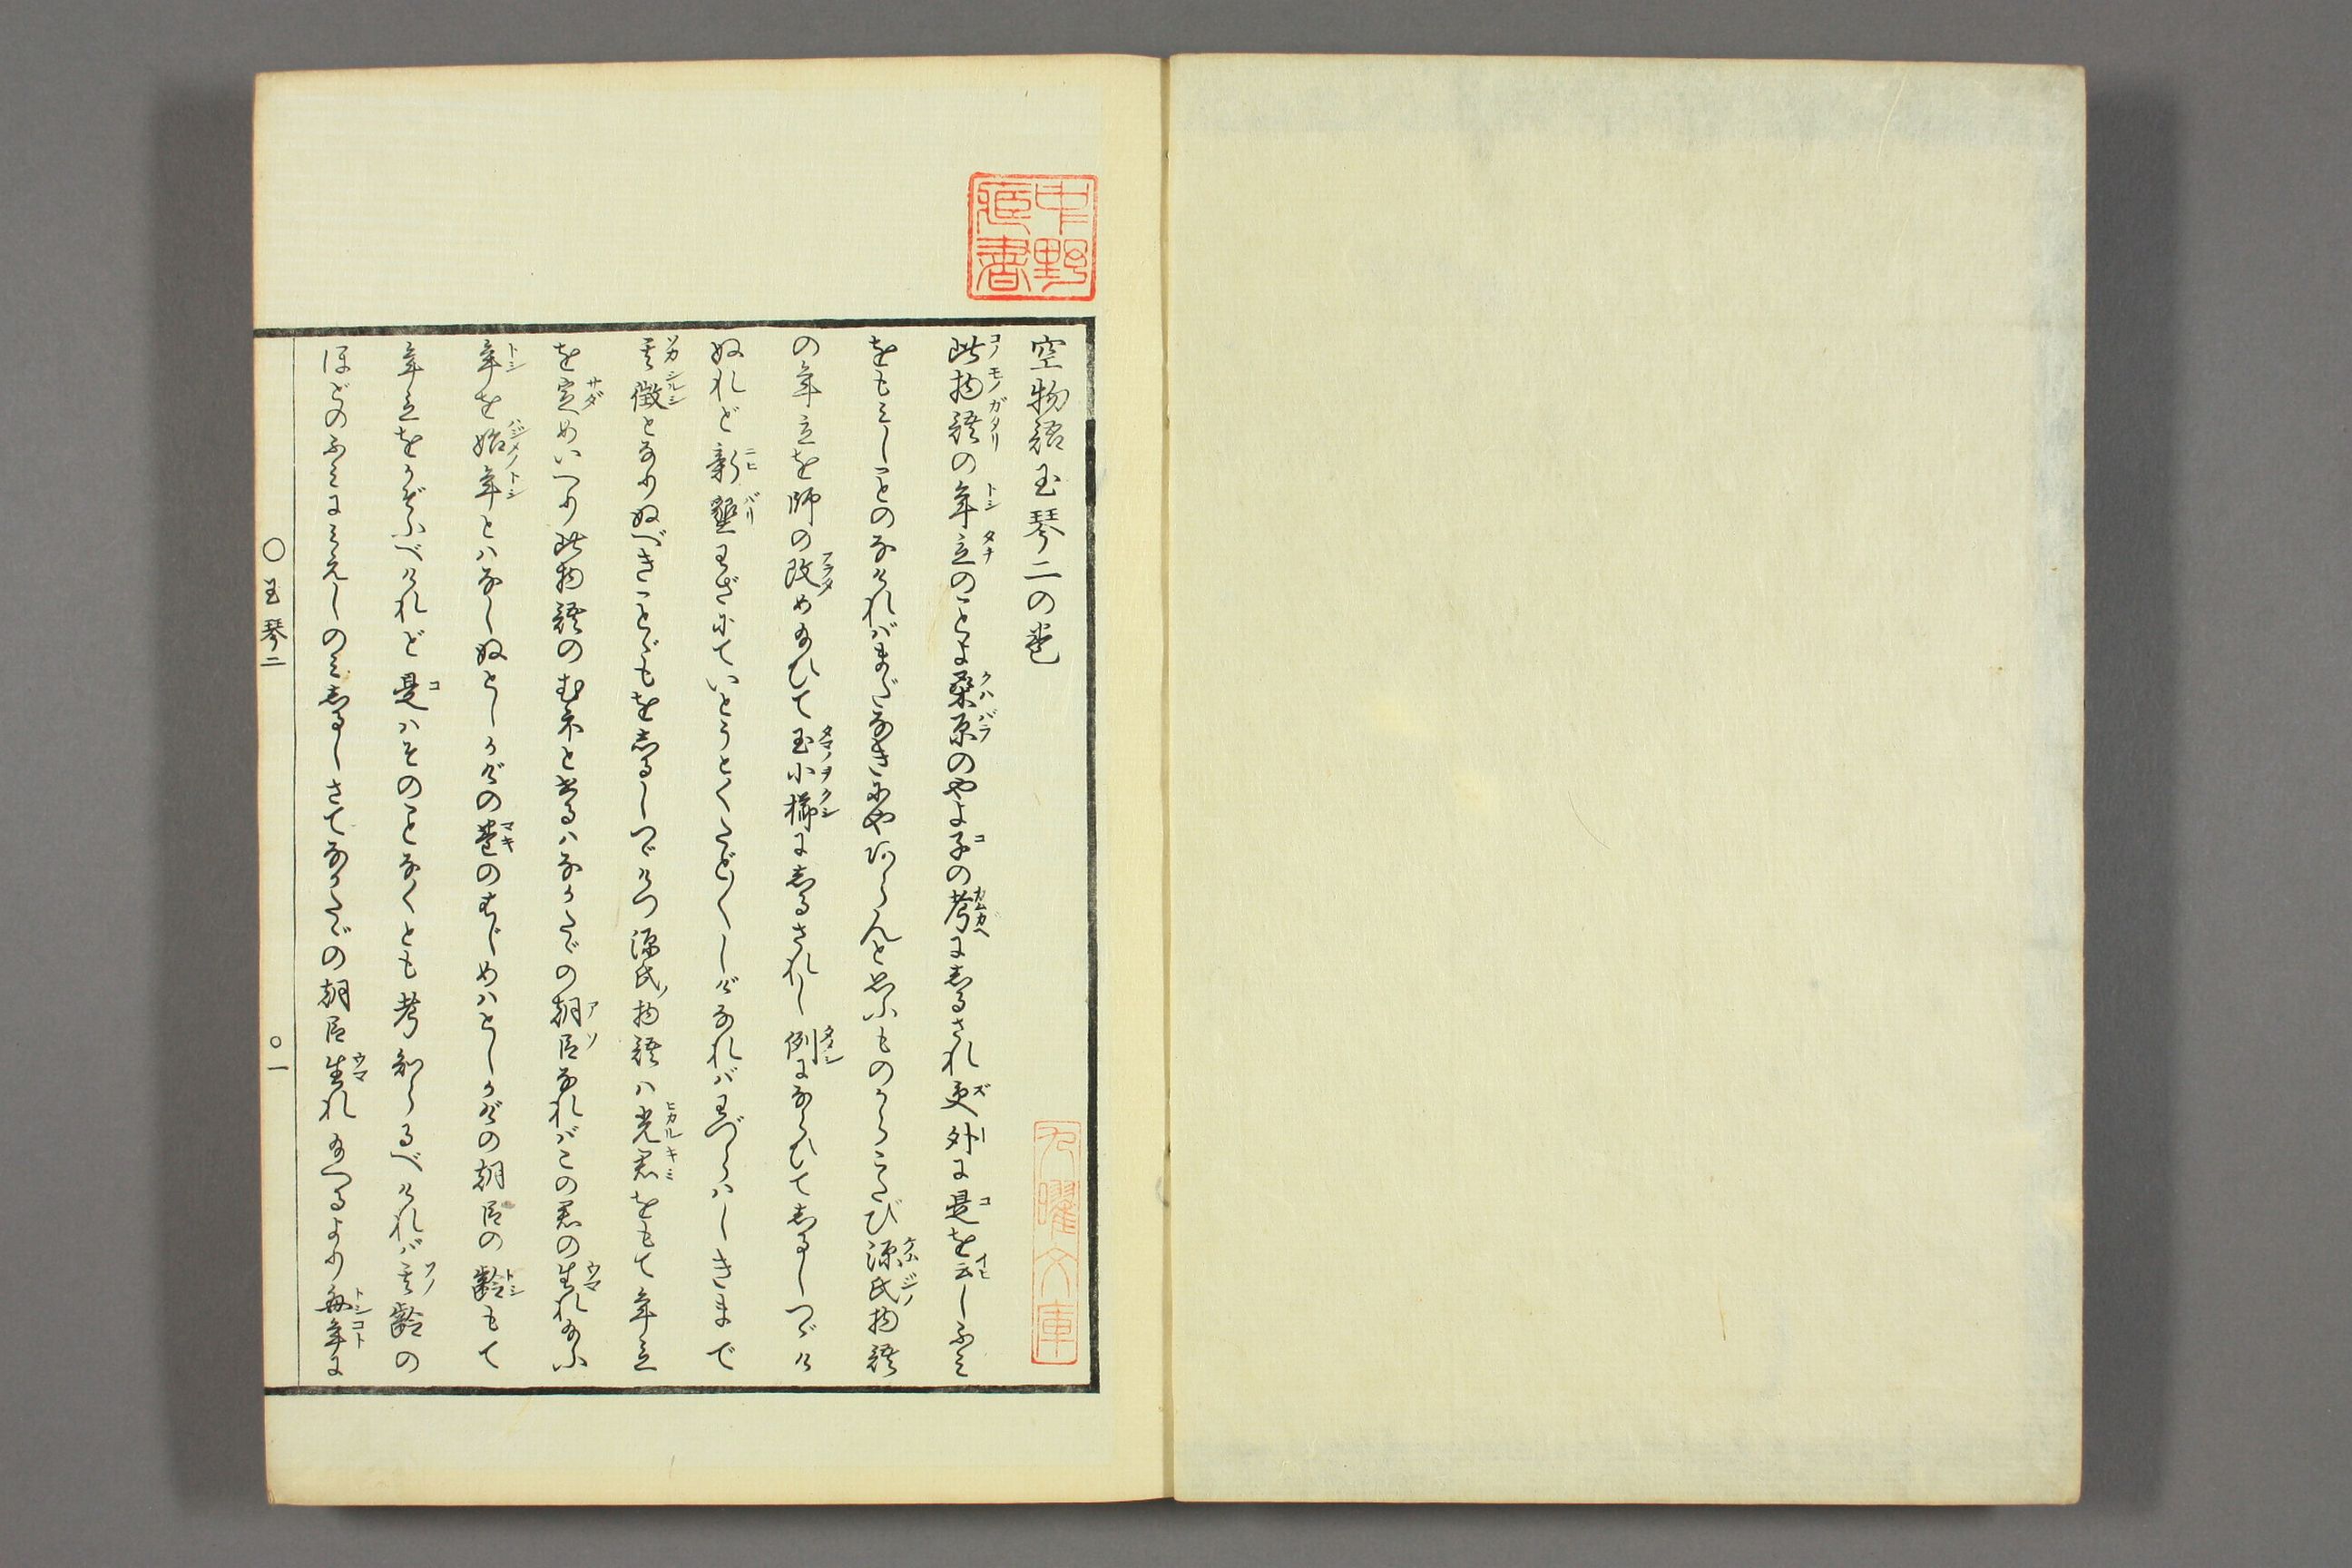 空物語玉琴二の巻
此物語の年立のことよ桑原のやよ子の考にしるされ更外に是を云しふみ
をもみしことのなければまだなきにやあらんと思ふものからこたび源氏物語
の年立を師の改め給ひて玉小櫛にしるされし例にならひてしるしつゞけ
ぬれど新墾わざにていとうとくたど〳〵しげなればわづらはしきまで
其徴となりぬべきことゞもをしるしつゞけつ源氏ノ物語ハ光君をもて年立
を定めいへり此物語のむねとあるハなかたゞの朝臣なればこの君の生れ給ふ
年を始年とハなしぬとしかげの巻のはじめハとしかげの朝臣の齢もて
年立をかぞふべけれど是ハそのことなくとも考知らるべければ其齢の
ほどのふみにみえしのみしるしさてなかたゞの朝臣生れ給へるより毎年に
〇玉琴二
〇一
中野蔵書
九曜文庫